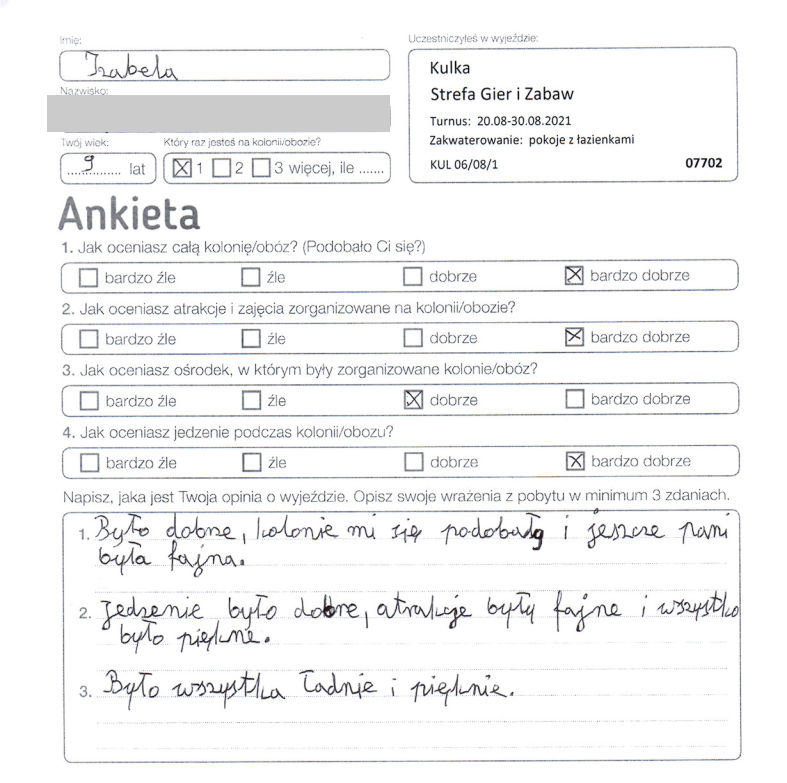 Imię:
Izabela
Nazwisko:
Twój wiek: Który raz jesteś na kolonii/obozie?
9 lat 1 2 3 więcej, ile .......
Uczestniczyłeś w wyjeździe:
Kulka
Strefa Gier i Zabaw
Turnus: 20.08-30.08.2021
Zakwaterowanie: pokoje z łazienkami
KUL 06/08/1 07702
Ankieta
1. Jak oceniasz całą kolonię/obóz? (Podobało Ci się?)
bardzo źle źle dobrze bardzo dobrze
2. Jak oceniasz atrakcje i zajęcia zorganizowane na kolonii/obozie?
bardzo źle źle dobrze bardzo dobrze
3. Jak oceniasz ośrodek, w którym były zorganizowane kolonie/obóz?
bardzo źle źle dobrze bardzo dobrze
4. Jak oceniasz jedzenie podczas kolonii/obozu?
bardzo źle źle dobrze bardzo dobrze
Napisz, jaka jest Twoja opinia o wyjeździe. Opisz swoje wrażenia z pobytu w minimum 3 zdaniach.
1. Było dobrze, kolonie mi się podobały i jeszcze pani
była fajna.
2. Jedzenie było dobre, atrakcje były fajne i wszystko
było piękne.
3. Było wszystka ładnie i pięknie.